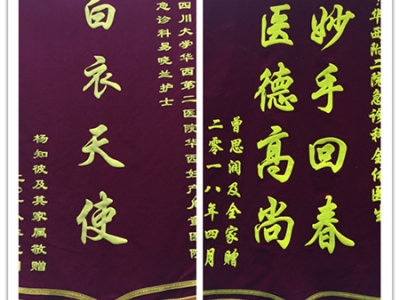 四川大学华西第二医院华西妇产儿童医院
急诊科易晓兰护士
白衣天使
杨知彼及其家属敬赠
华西附二院急诊科全体医生
妙手回春
医德高尚
曾思润及全家赠
二零一八年四月